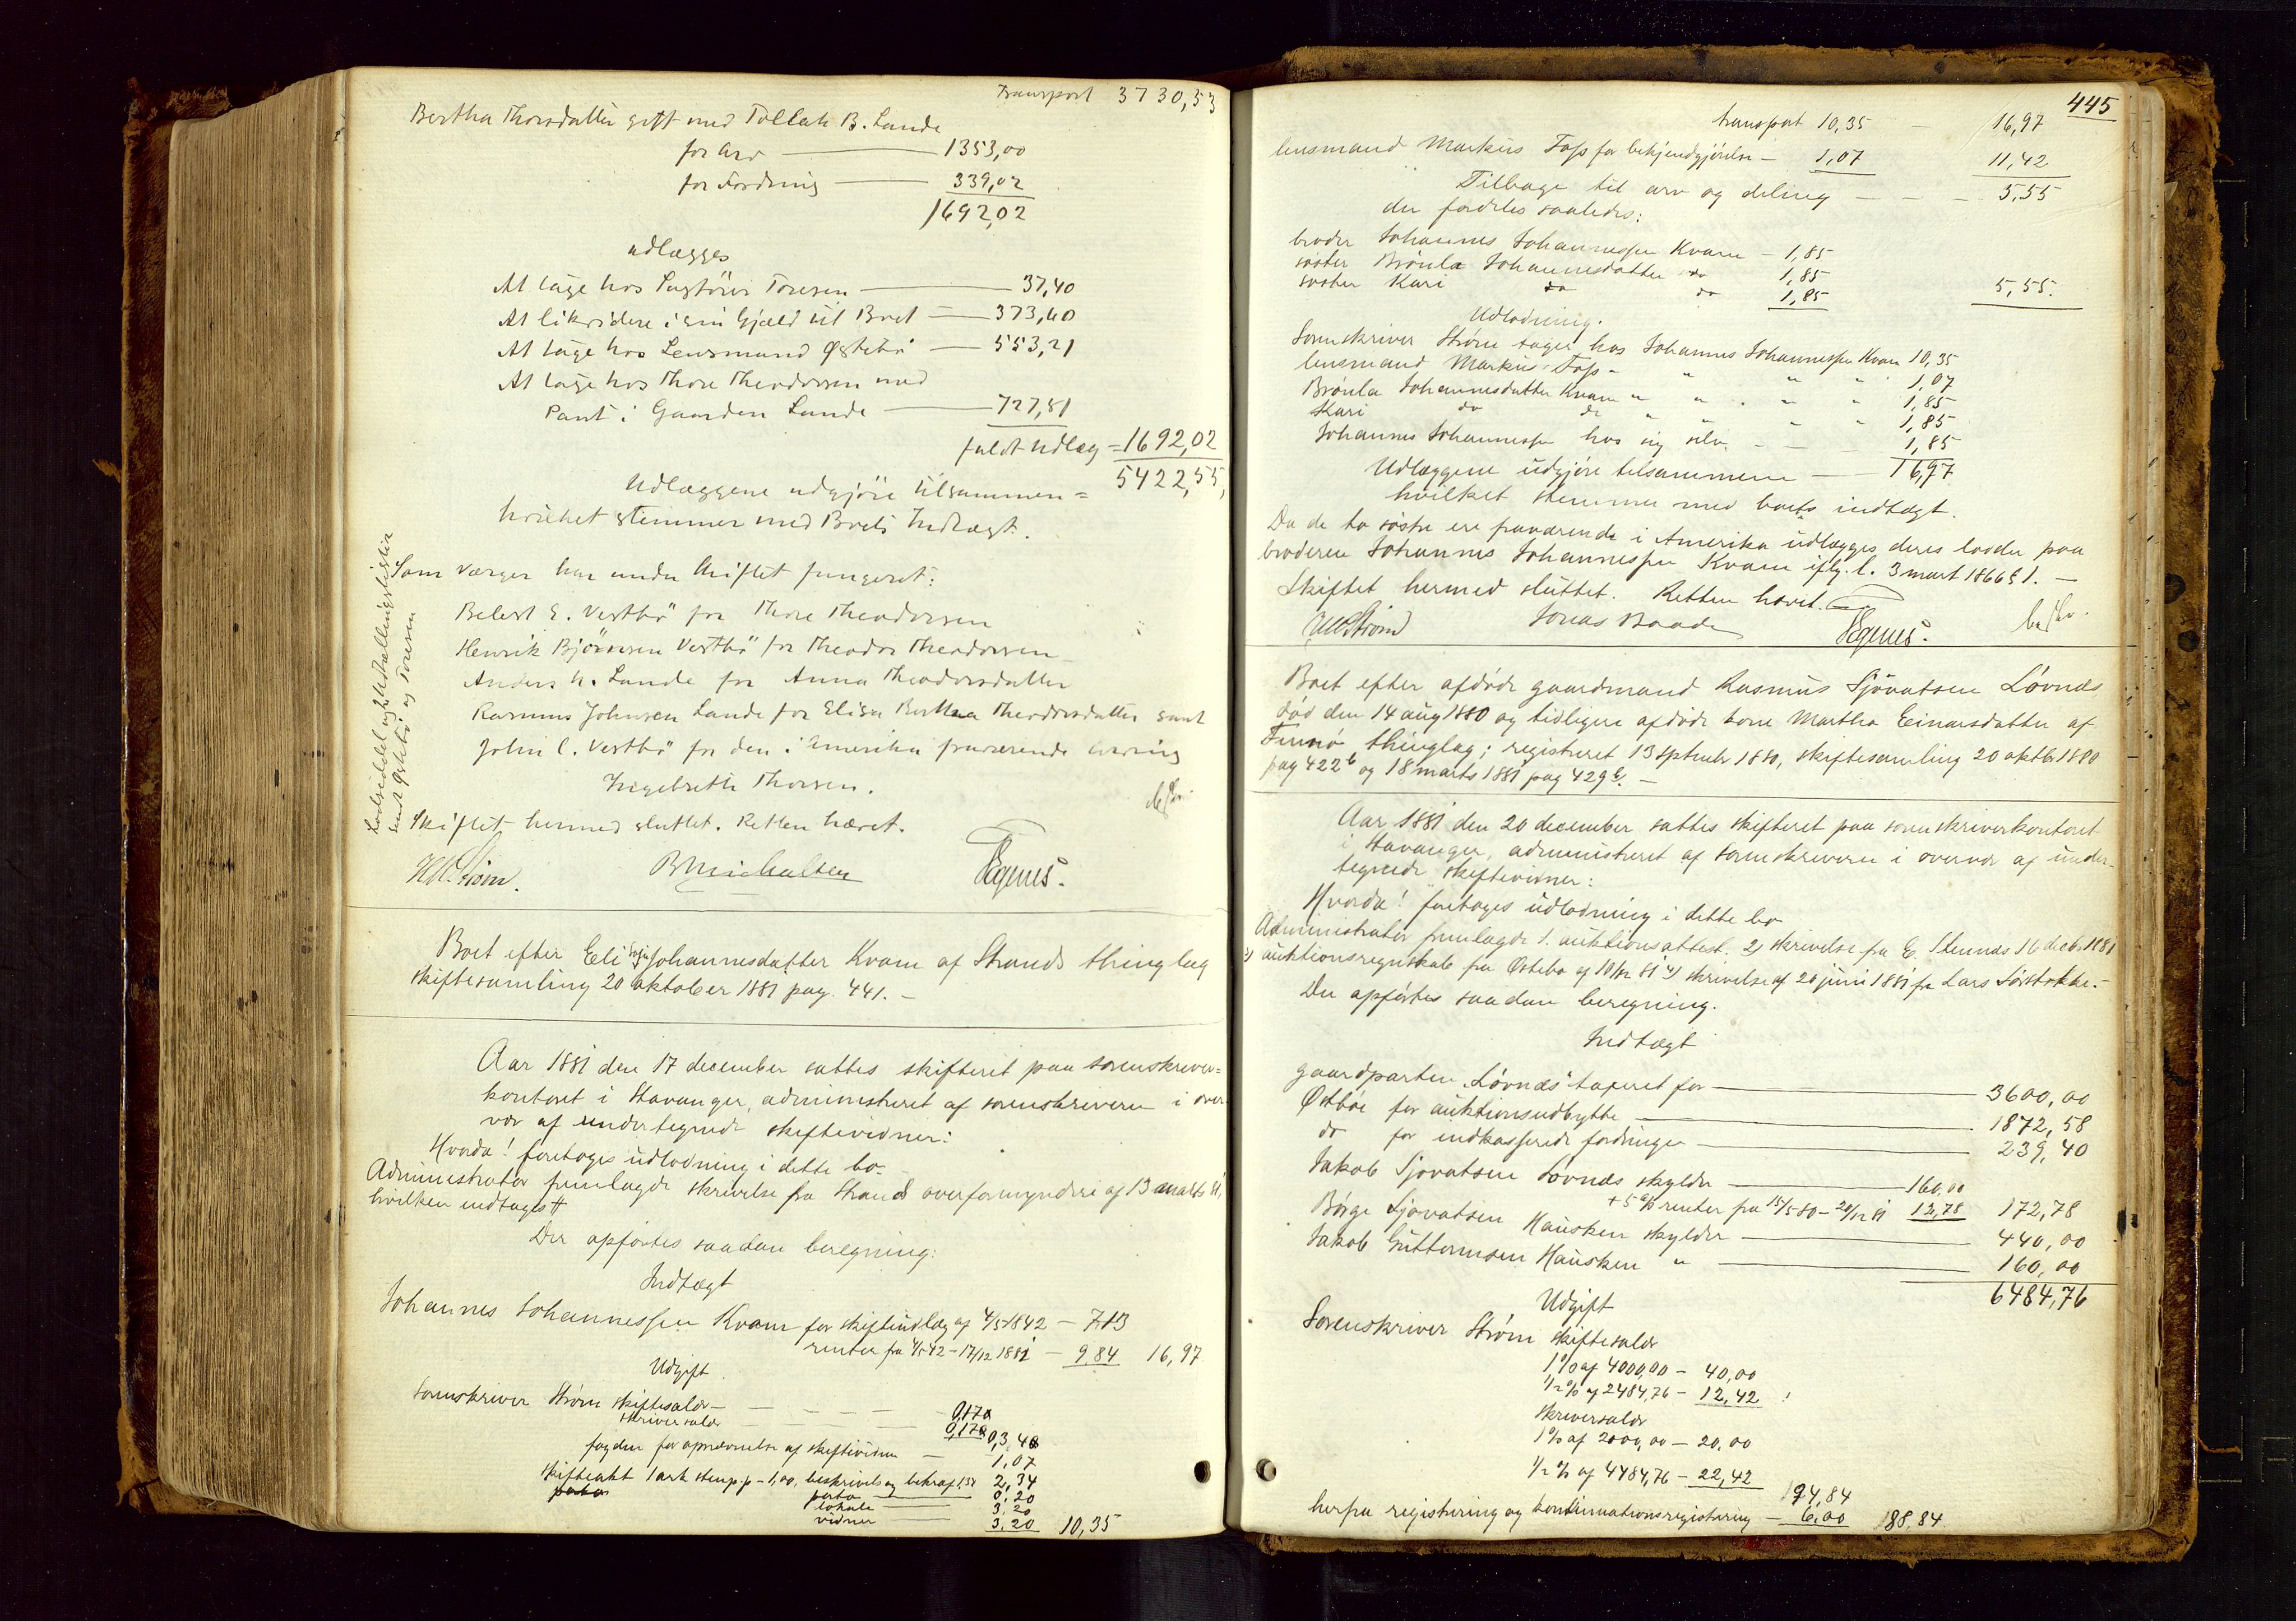 Transport 3730,53
Bertha Thorsdatter gift med Tollak B. Lande
for Arv — 1353,00
for Fordring — 339,02
1692,02
udlægges
At tage hos Sagfører Toresen — 37,40
At likvidere i sin Gjæld til Boet — 373,40
At tage hos Lensmand Østebö — 553,21
At tage hos Thore Theodorsen med
Pant i Gaarden Lande — 727,51
fuldt Udlæg = 1692,02
Udlæggene udgjöre tilsammen = 5422,55,
hvilket stemmer med Boets Indtægt.
Som Værger har under Skiftet fungeret:
Belest E. Vestbö for Thore Theodorsen
Henrik Björnsen Vestbö for Theodor Theodorsen
Anders N. Lande for Anna Theodorsdatter
Rasmus Johnsen Lande for Elisa Bertha Theodorsdatter samt
John C. Vestbö for den i Amerika fraværende Arving
Ingebreth Thorsen.
Lodseddel og Udstællingslister
samt Østebö og Toresen
Skiftet hermed sluttet. Retten hævet.
Strøm. B Michalsen Egenes.
Boet efter Eli Johannesdatter Kvam af Strands thinglag
skiftesamling 20 oktober 1881 pag. 441. —
Aar 1881 den 17 december sattes skifteret paa sorenskriver=
kontoret i Stavanger, administreret af sorenskriveren i over
vær af undertegnede skiftevidner:
Hvorda! foretoges udlodning i dette bo.
Administrator fremlagde skrivelse fra Strands overformynderi af 13 marts 81,
hvilken indtages #
Der opførtes saadan beregning:
Indtægt
Johannes Johannessen Kvam for skifteudlæg af 4/5 1842 — 7.13
renter fra 4/5 42 – 17/12 1881 — 9,84 16,97
Udgift
Sorenskriver Strøm skiftesalær — 0,17
skriversalær — 0,17 0,34
fogden for opnævnelse af skiftevidner — 1,07
skifteakt 1 ark stemp.p — 1,00, beskrivels og bekræf 1,34 2,34
porto — 0,20
lokale — 3,20
vidner 3,20 10,35
445
transport 10,35 — 16,97
lensmand Markus Foss for bekjendtgjørelse — 1,07 11,42
Tilbage til arv og deling — — — 5,55
der fordeles saaledes:
broder Johannes Johannessen Kvam — 1,85
søster Brönla Johannesdatter do 1,85
søster Kari do do 1,85 5,55.
Udlodning.
Sorenskriver Strøm tager hos Johannes Johannessen Kvam 10,35
lensmand Markus Foss — " " " 1,07
Brönla Johannesdatter Kvam " " " " 1,85
Kari do do " " " " 1,85
Johannes Johannessen hos sig selv — — 1,85
Udlæggene udgjøre tilsammen — 16,97
hvilket stemmer med boets indtægt.
Da de to søstre ere fraværende i Amerika udlægges deres lodder paa
broderen Johannes Johannessen Kvam iflg. l. 3 mart 1866 § 1. —
Skiftet hermed sluttet. Retten hævet.
Strøm Jonas Baade Egenes.
Boet efter afdøde gaardmand Rasmus Sjövatsen Løvnæs
död den 14 aug 1880 og tidligere afdøde kone Martha Einarsdatter af
Finnö thinglag; registreret 13 septembr 1880, skiftesamling 20 oktbr 1880
pag 422b og 18 marts 1881 pag 429b. —
Aar 1881 den 20 december sattes skifteret paa sorenskriverkontoret
i Stavanger, administreret af sorenskriveren i overvær af under-
tegnede skiftevidner:
Hvorda! foretoges udlodning i dette bo
Administrator fremlagde 1. auktionsattest. 2) skrivelse fra E. Stennæs 16 decbr 1881
3) auktionsregnskab fra Østebø af 10/12 81 4) skrivelse af 20 juni 1881 fra Lars Sörstokke.-
Der opførtes saadan beregning.
Indtægt
gaardparten "Løvnæs" taxeret for — 3600,00
Østbøe for auktionsudbytte — 1872,58
do for indkasserede fordringer — 239,40
Jakob Sjovatsen Løvnæs skylder — 160,00
+ 5% renter fra 15/5 80 – 20/12 81 12,78 172,78
Børge Sjovatsen Hausken skylder — 440,00
Jakob Guttormsen Hausken " — 160,00
6484,76
Udgift
Sorenskriver Strøm skiftesalær
1% af 4000,00 — 40,00
1/2% af 2484,76 — 12,42
skriversalær
1% af 2000,00 — 20,00
1/2 % af 4484,76 — 22,42
194,84
herfra registrering og kontinuationsregistering — 6,00 188,84